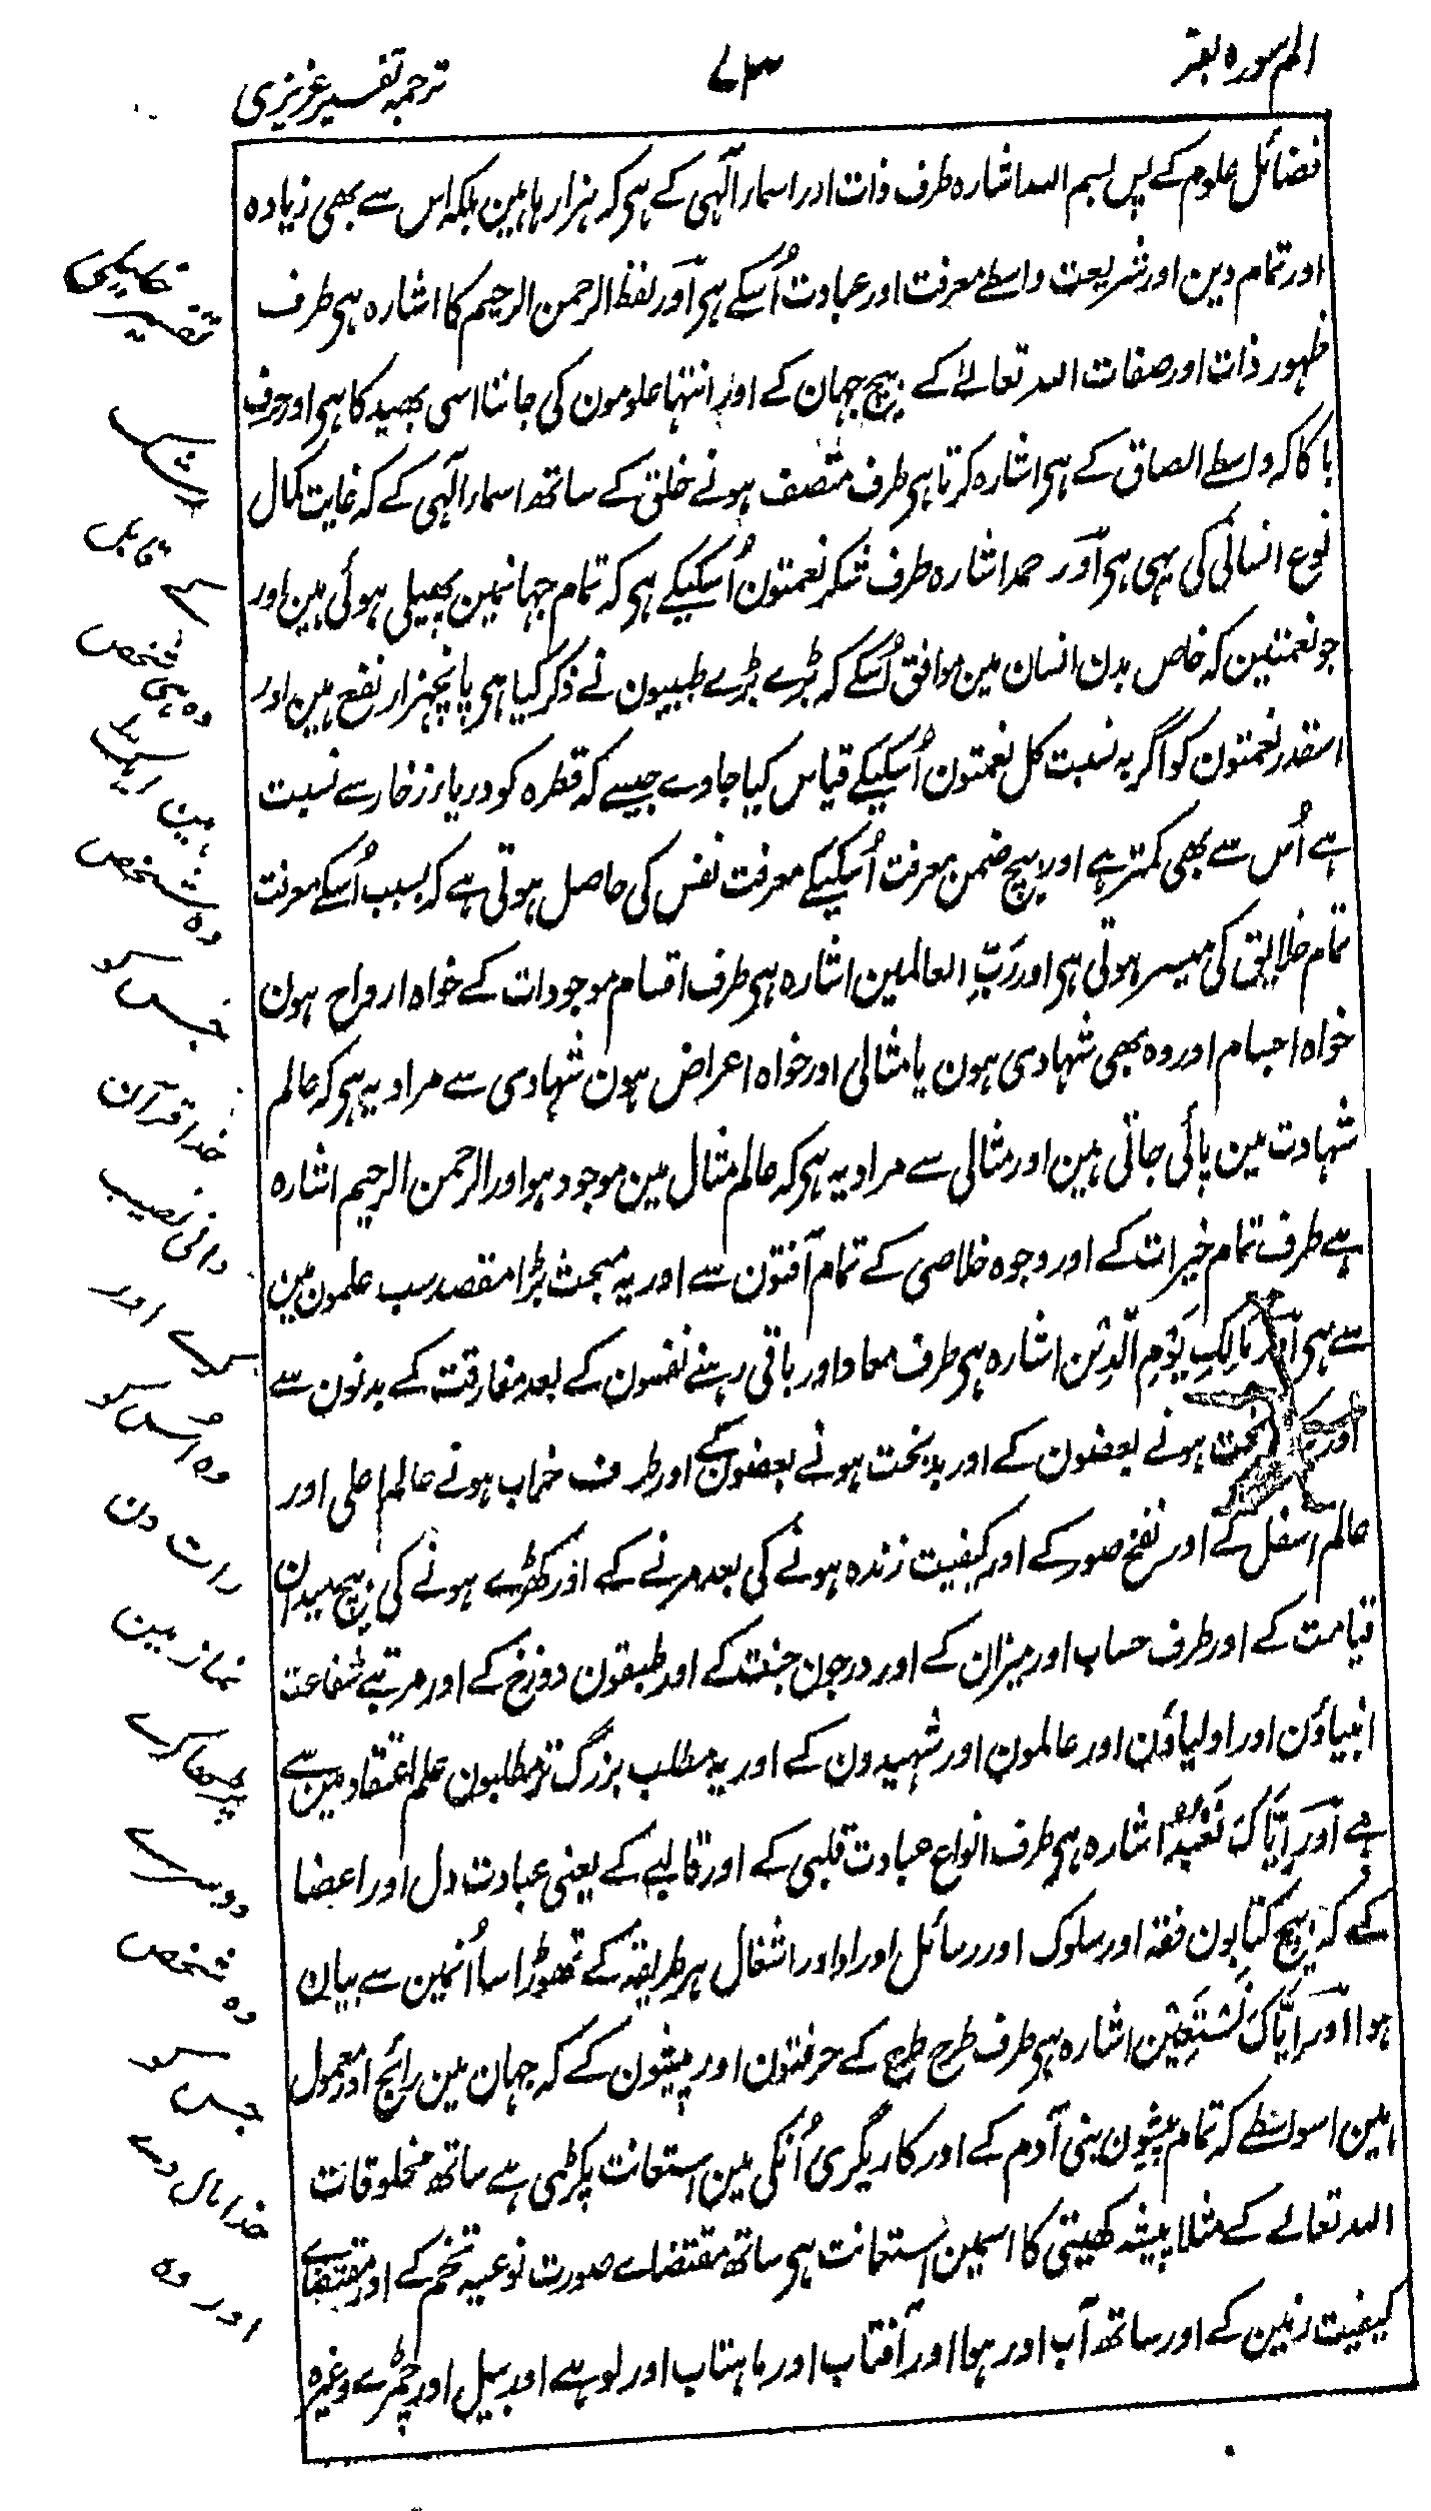 الم سورہ بقر
۷۳
ترجمہ تفسیر عزیزی
فضائل علوم کے پس بسم اللہ اشارہ طرف ذات اور اسماء الٰہی کے ہی کہ ہزارہا ہین بلکہ اس سے بھی زیادہ
اور تمام دین اور شریعت واسطے معرفت اور عبادت اُسکے ہی اَور لفظ الرحمن الرحیم کا اشارہ ہی طرف
ظہور ذات اور صفات اللہ تعالےٰ کے بیچ جہان کے اور انتہا علومون کی جاننا اسی بھید کا ہی اور حرف
با کا کہ واسطے الصاق کے ہی اشارہ کرتا ہی طرف متصف ہونے خلق کے ساتھ اسماء الٰہی کے کہ غایت کمال
نوع انسانی کی یہی ہی اَور حمد اشارہ طرف شکر نعمتون اُسکیکے ہی کہ تمام جہانمین پھیلی ہوئی ہین اور
جو نعمتین کہ خاص بدن انسان مین موافق اُسکے کہ بڑے بڑے طبیبون نے ذکر کیا ہی پانچہزار نفع ہین اور
اسقدر نعمتون کو اگر بہ نسبت کل نعمتون اُسکیکے قیاس کیا جاوے جیسے کہ قطرہ کو دریاء زخار سے نسبت
ہے اُس سے بھی کمتر ہے اور بیچ ضمن معرفت اُسکیکے معرفت نفس کی حاصل ہوتی ہے کہ بسبب اُسکے معرفت
تمام خلایق کی میسر ہوتی ہی اور رَبِّ العالمین اشارہ ہی طرف اقسام موجودات کے خواہ ارواح ہون
خواہ اجسام اور وہ بھی شہادی ہون یا مثالی اور خواہ اعراض ہون شہادی سے مراد یہ ہی کہ عالم
شہادت مین پائی جاتی ہین اور مثالی سے مراد یہ ہی کہ عالم مثال مین موجود ہو اور الرحمن الرحیم اشارہ
ہے طرف تمام خیرات کے اور وجوہ خلاصی کے تمام آفتون سے اور یہ مبحث بڑا مقصد سب علمون مین
سے ہی اَور مَالِکِ یَوْمِ الدِّیْن اشارہ ہی طرف معاد اور باقی رہنے نفسون کے بعد مفارقت کے بدنون سے
اور نیکبخت ہونے بعضون کے اور بدبخت ہونے بعضون کے اور طرف خراب ہونے عالم اعلی اور
عالم اسفل کے اور نفخ صور کے اور کیفیت زندہ ہونے کی بعد مرنے کے اور کھڑے ہونے کی بیچ میدان
قیامت کے اور طرف حساب اور میزان کے اور درجون جنت کے اور طبقون دوزخ کے اور مرتبے شفاعت
انبیاؤن اور اولیاؤن اور عالمون اور شہیدون کے اور یہ مطلب بزرگ تر مطلبون علم اعتقاد مین سے
ہے اَور اِیَّاکَ نَعْبُدُ اشارہ ہی طرف انواع عبادت قلبی کے اور قالبے کے یعنی عبادت دل اور اعضا
کے کہ بیچ کتابون فقہ اور سلوک اور رسائل اوراد اور اشغال ہر طریقہ کے تھوڑا سا اُنمین سے بیان
ہوا اَور اِیَّاکَ نَسْتَعِیْن اشارہ ہی طرف طرح طرح کے حرفتون اور پیشون کے کہ جہان مین رائج اور معمول
ہین اسواسطے کہ تمام پیشون بنی آدم کے اور کاریگری اُنکی مین استعانت پکڑنی ہے ساتھ مخلوقات
اللہ تعالے کے مثلا پیشہ کھیتی کا اسمین استعانت ہی ساتھ مقتضاے صورت نوعیہ تخم کے اور مقتضاے
کیفیت زمین کے اور ساتھ آب اور ہوا اور آفتاب اور ماہتاب اور لوہے اور بیل اور چمڑے وغیرہ
شخص
ہین
وہ شخص
جس کو
خدا قرآن
نصیب
کرے اور
وہ اُس کو
رات دن
نماز مین
پڑھا کرے
دوسرے
وہ شخص
جس کو
خدا مال دے
اور وہ